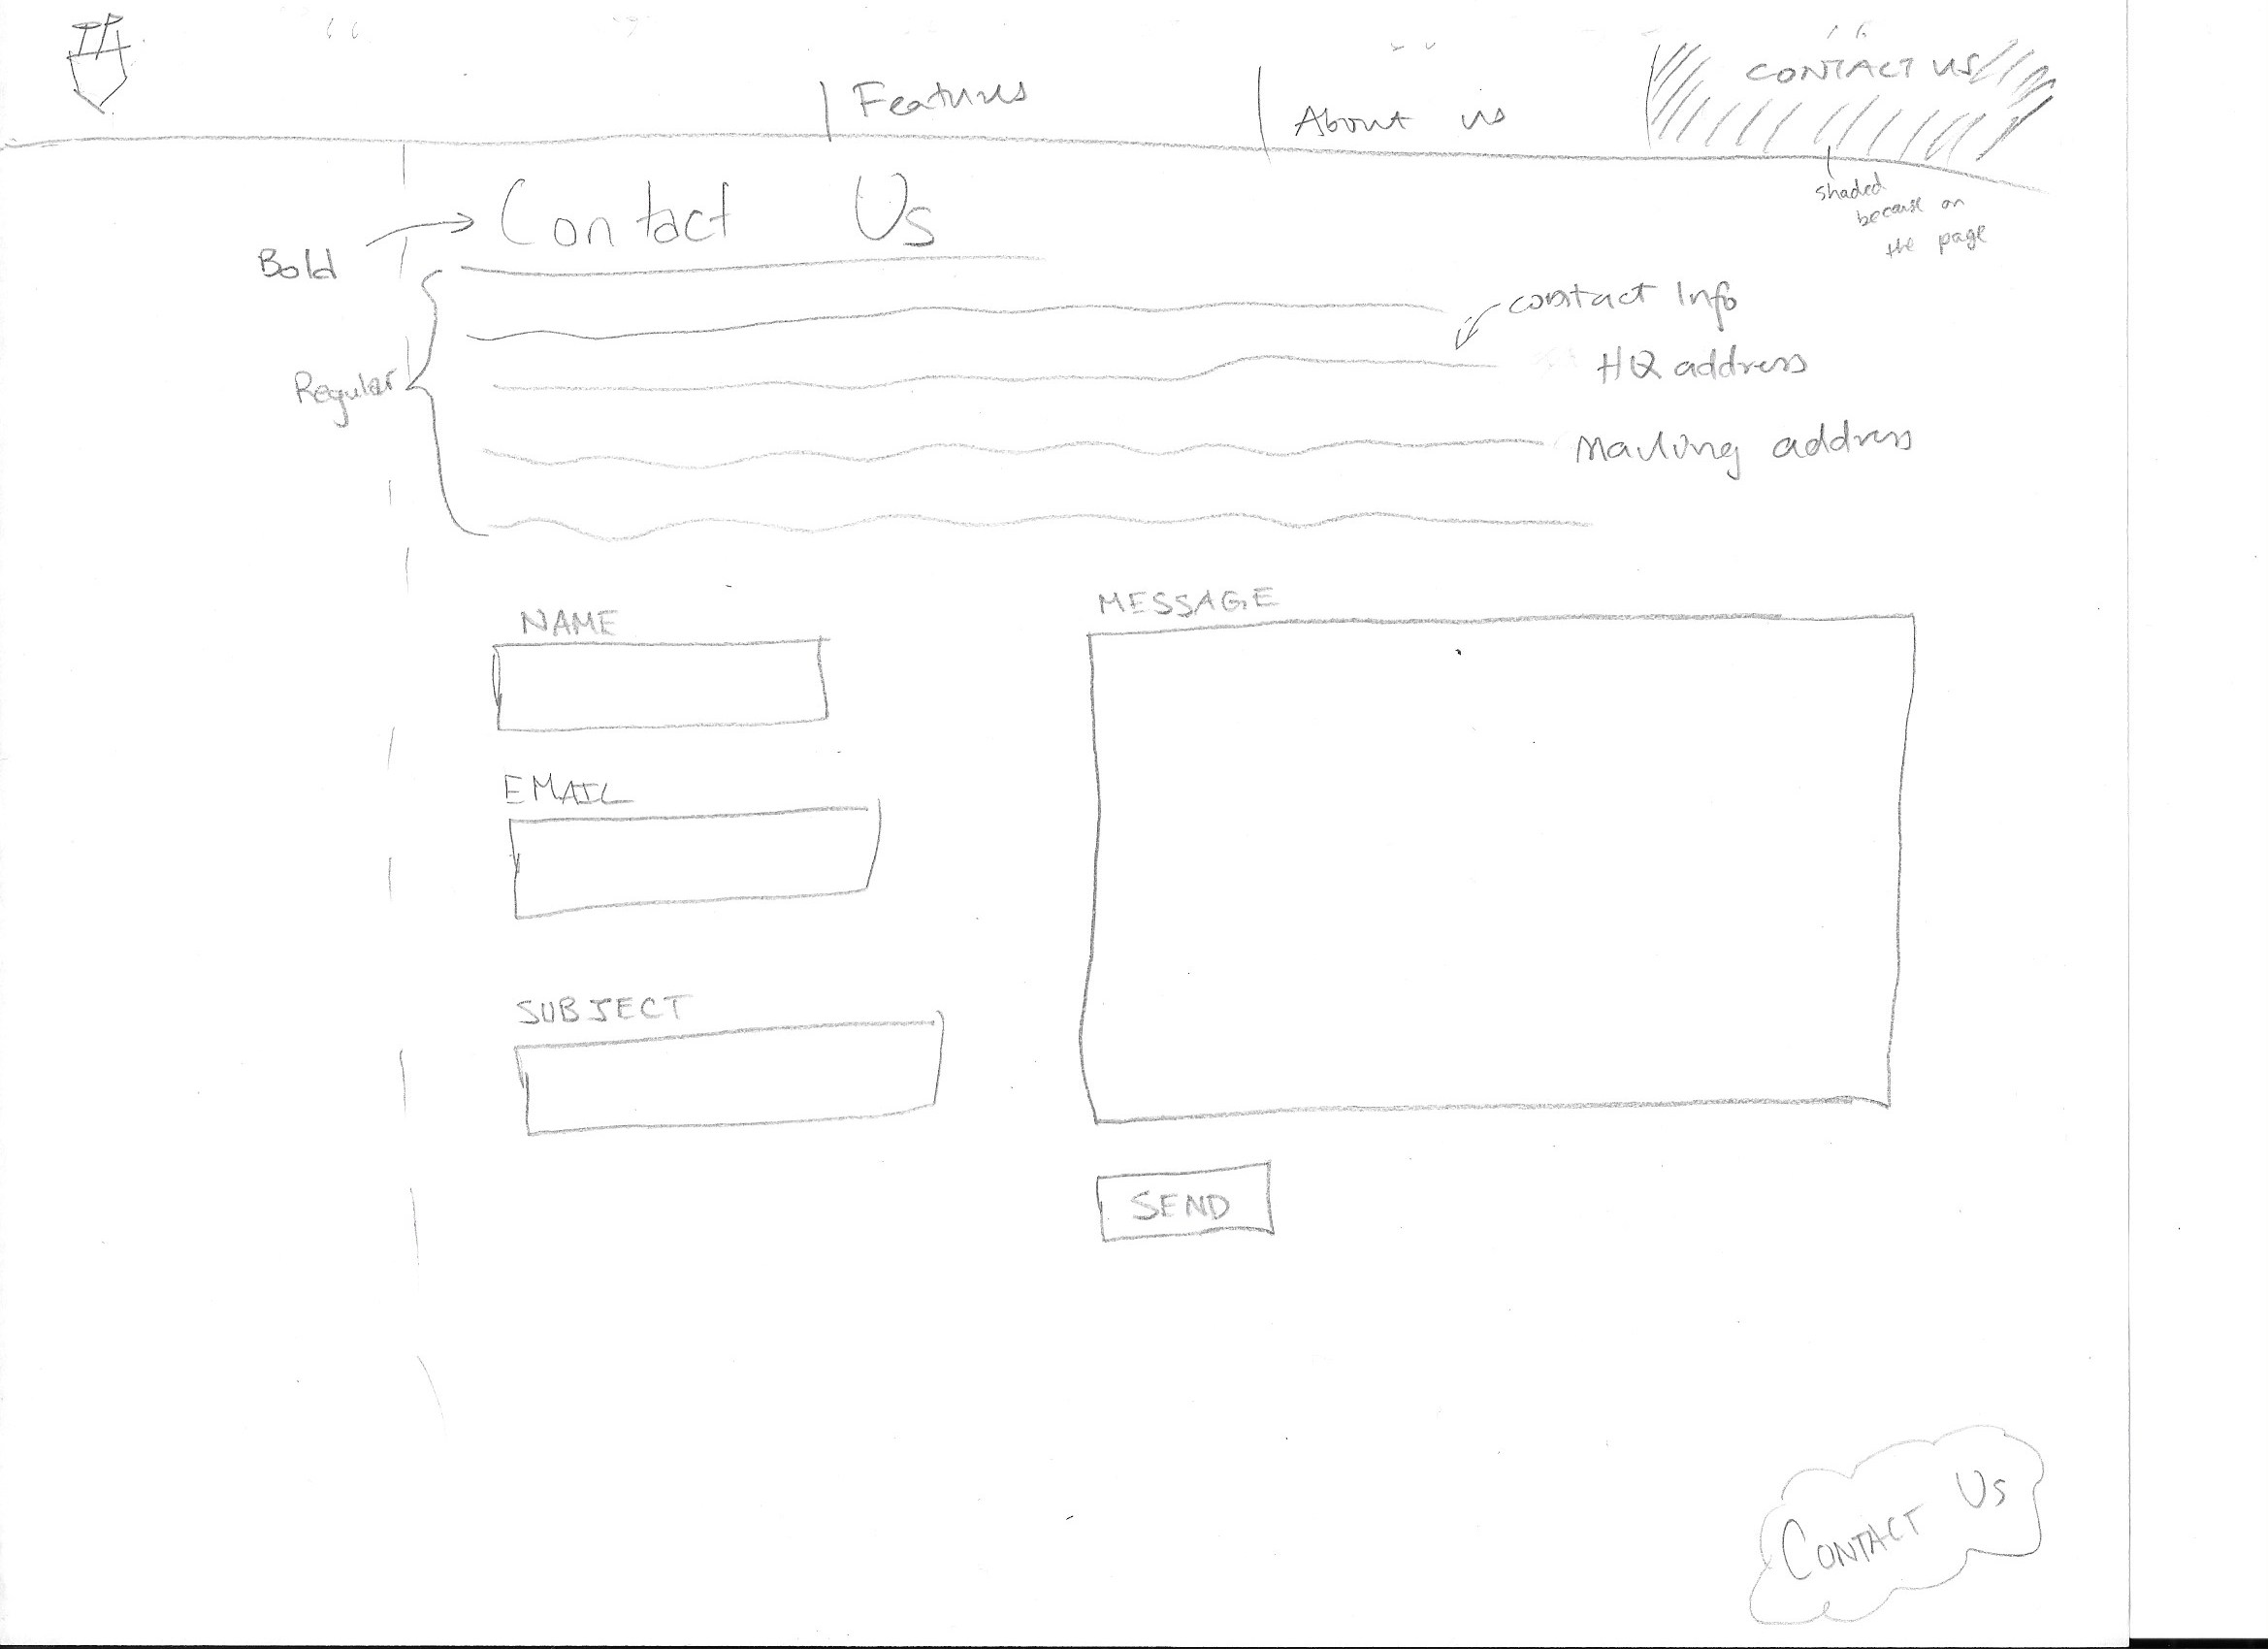 IA
Features
About us
CONTACT US
shaded
because on
the page
Contact Us
Bold
Regular
contact Info
HQ address
Mailing address
NAME
MESSAGE
EMAIL
SUBJECT
SEND
CONTACT US